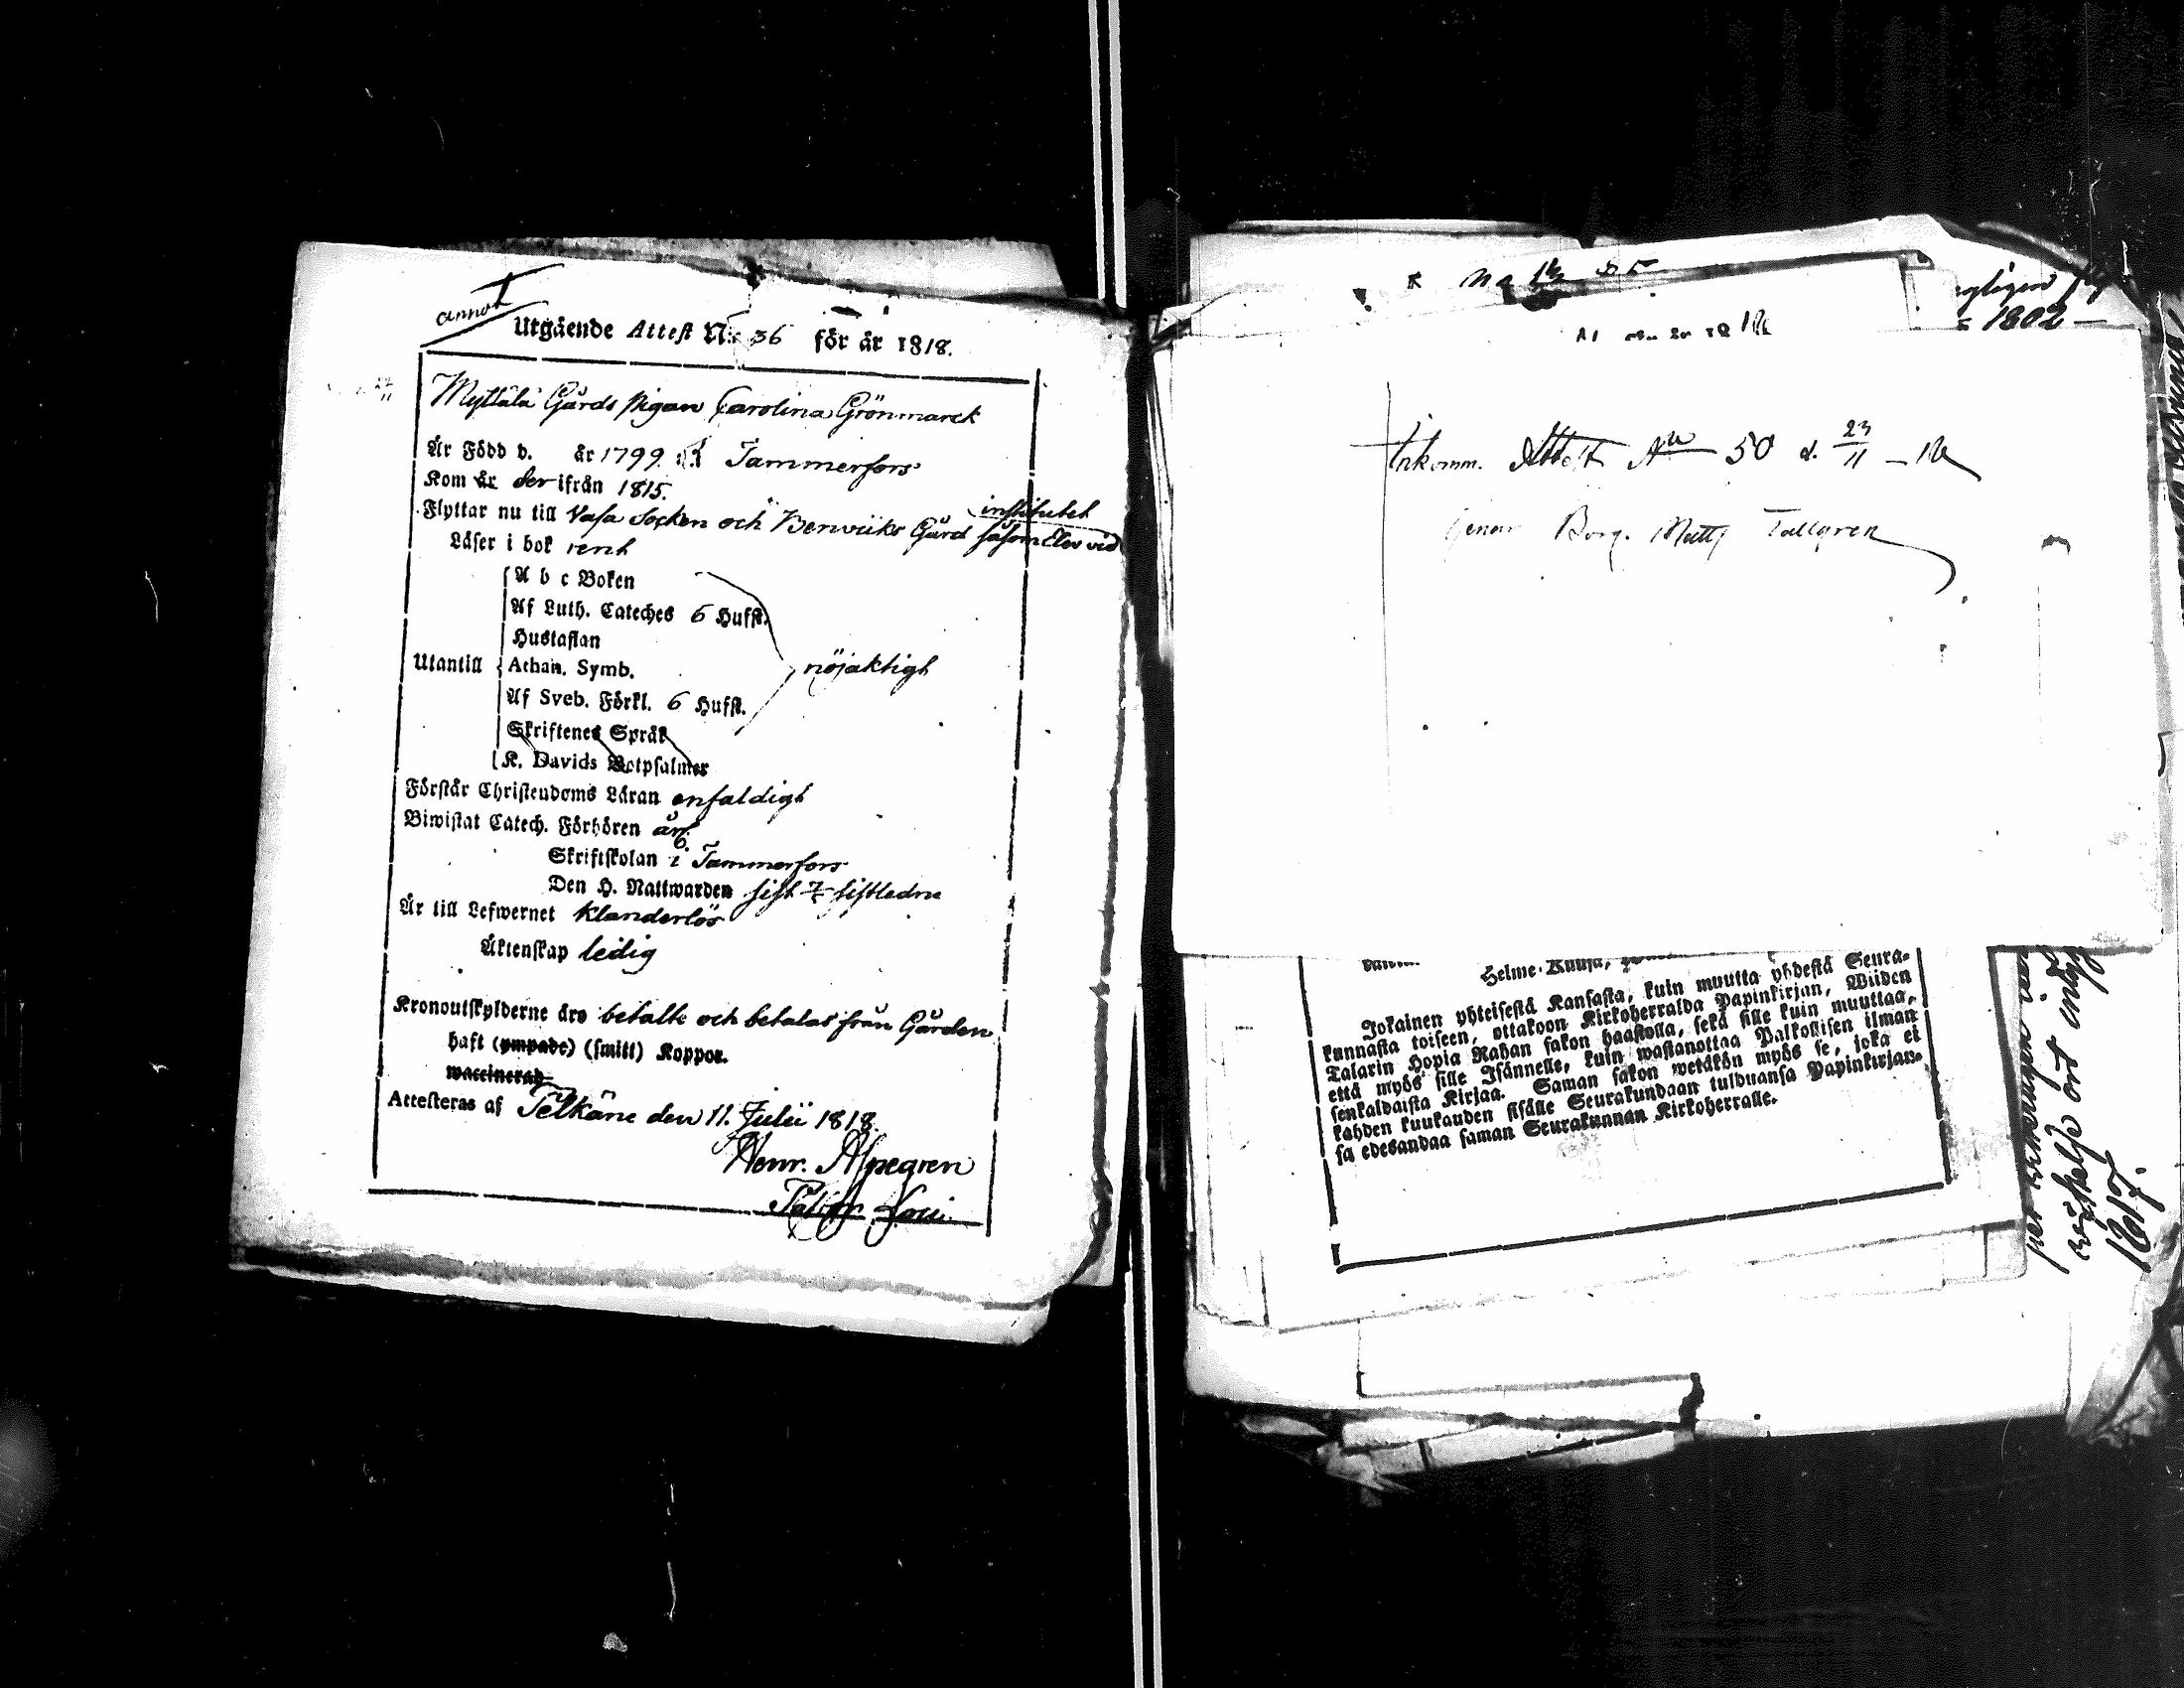 annot
Utgående Attest No 36 för år 1818.
Myttälä Gårds pigan Carolina Grönmarck
Är Född d. år 1799. i Tammerfors
Kom år derifrån 1815.
institutet
Flyttar nu till Vasa Socken och Berwiiks Gård såsom Elev vid
Läser i bok rent
A b c Boken
Af Luth. Cateches 6 Hufst.
Hustaflan
Utantill Athan. Symb. nöjaktigt
Af Sveb. Förkl. 6 Hufst.
Skriftenes Språk
K. Davids Botpsalmer
Förstår Christendoms Läran enfaldigt
Biwistat Catech. Förhören årl.
Skriftskolan i Tammerfors
Den H. Nattwarden sist sistledne
Är till Lefwernet klanderlös
Äktenskap ledig
Kronoutskylderne äro betalte och betalas från Gården
haft (ympade) (smitt) Koppor.
waccinerad
Attesteras af Pelkäne den 11. Julii 1818.
Henr. Alpegren
Past. Loci.
Inkomm. Attest No 50 d. 23/11 – 18
Genom Borg. Matts Tallgren
1802
Jokainen yhteisestä Kansasta, kuin muutta yhdestä Seura-
kunnasta toiseen, ottakoon Kirkoherralda Papinkirjan, Wiiden
Talarin Hopia Rahan sakon haastolla, sekä sille kuin muuttaa,
että myös sille Isännelle, kuin wastanottaa Palkollisen ilman
senkaldaista Kirjaa. Saman sakon wetäkön myös se, joka ei
kahden kuukauden sisälle Seurakundaan tulduansa Papinkirjan-
sa edesandaa saman Seurakunnan Kirkoherralle.
1817.